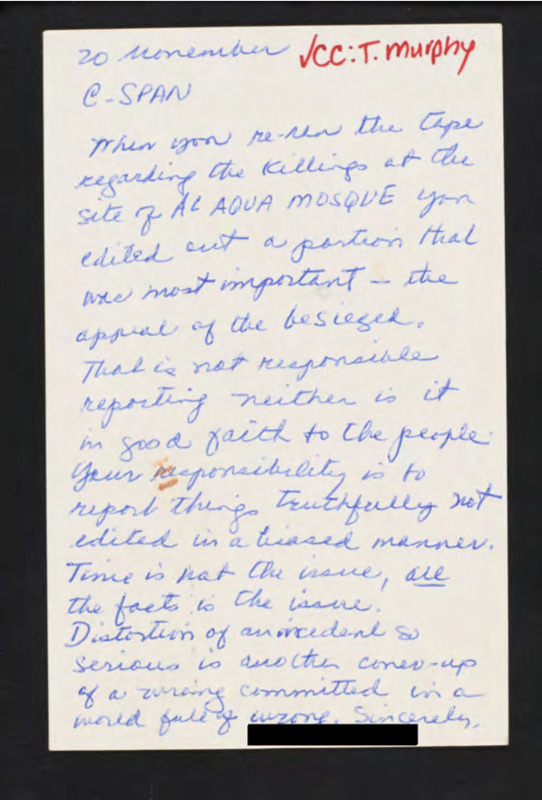 20 November ✓CC: T. Murphy
C-SPAN
When you re-run the tape
regarding the killings at the
site of AL AQUA MOSQUE you
edited out a portion that
was most important - the
appeal of the besieged.
That is not responsible
reporting neither is it
in good faith to the people.
Your responsibility is to
report things truthfully not
edited in a biased manner.
Time is not the issue, all
the facts is the issue.
Distortion of an incident so
serious is another cover-up
of a wrong committed in a
world full of wrong. Sincerely,